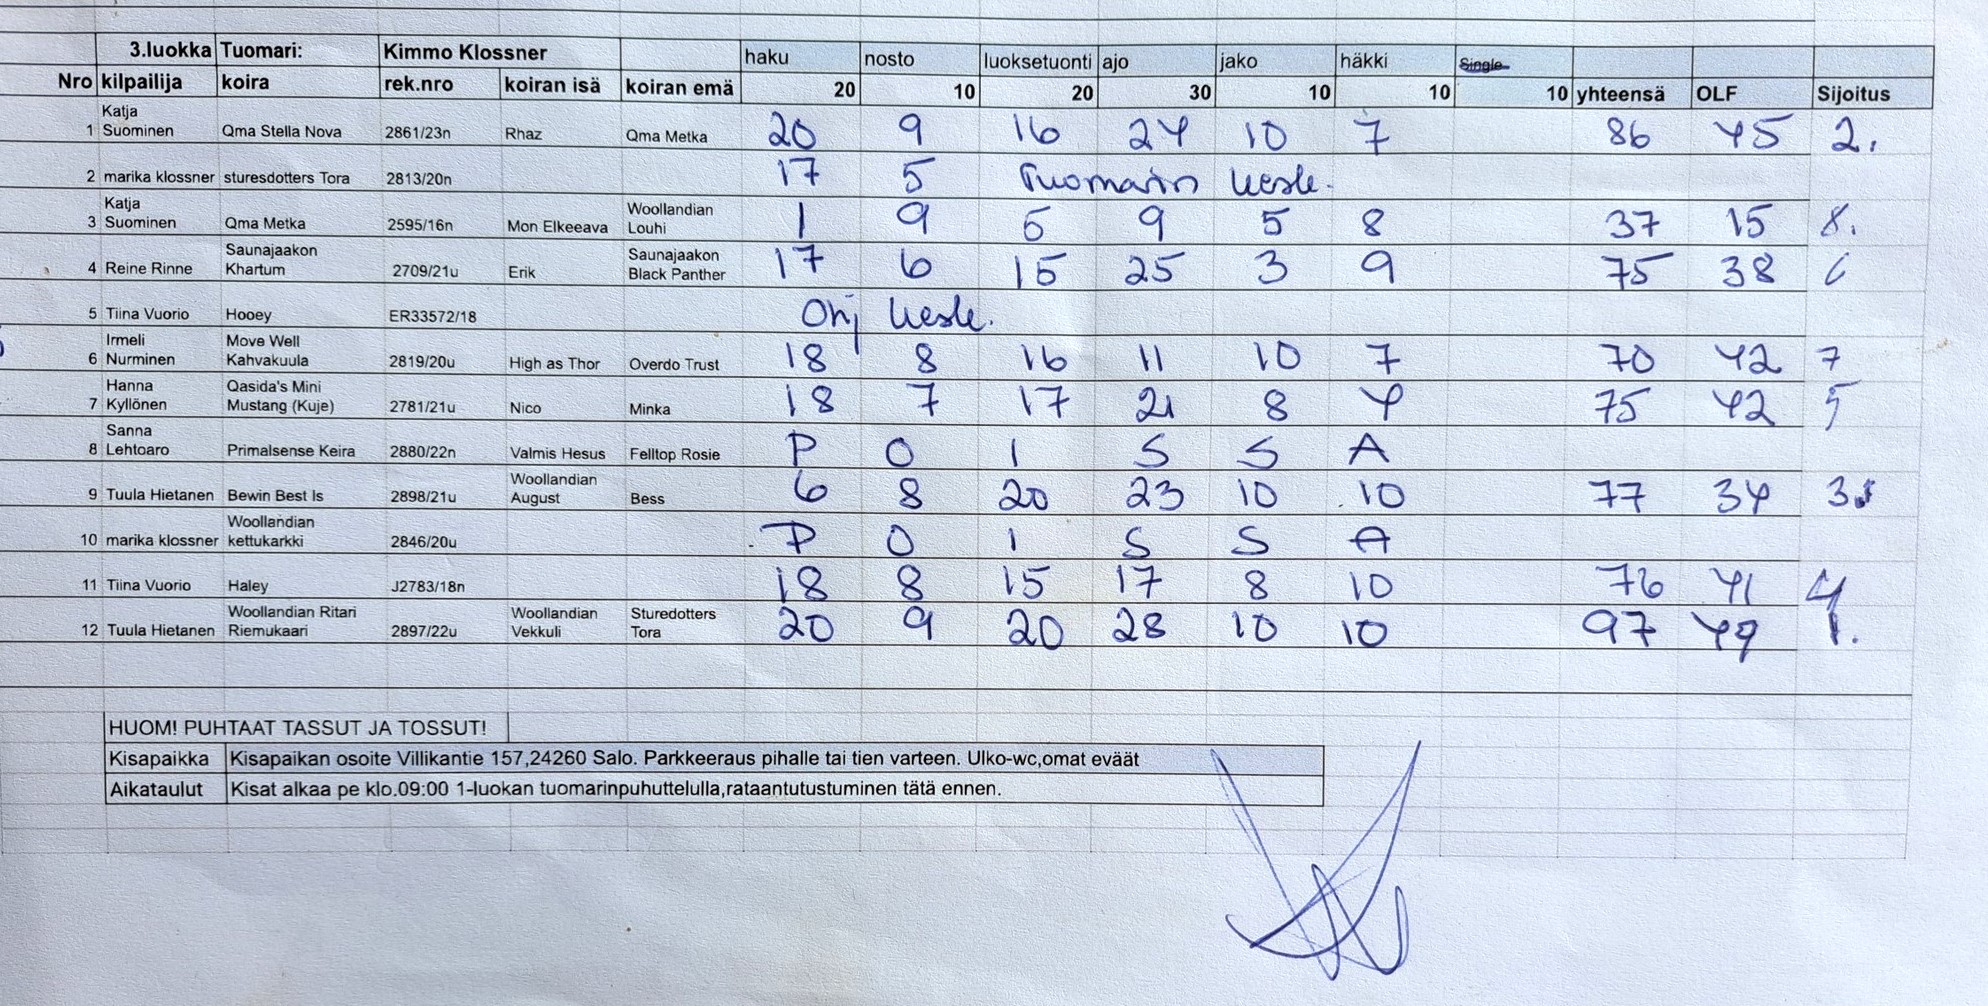 3.luokka Tuomari: Kimmo Klossner haku nosto luoksetuonti ajo jako häkki Single
Nro kilpailija koira rek.nro koiran isä koiran emä 20 10 20 30 10 10 10 yhteensä OLF Sijoitus
1 Katja Suominen Qma Stella Nova 2861/23n Rhaz Qma Metka 20 9 16 24 10 7 86 45 2.
2 marika klossner sturesdotters Tora 2813/20n 17 5 Tuomarin kesk.
3 Katja Suominen Qma Metka 2595/16n Mon Elkeeava Woollandian Louhi 1 9 5 9 5 8 37 15 8.
4 Reine Rinne Saunajaakon Khartum 2709/21u Erik Saunajaakon Black Panther 17 6 15 25 3 9 75 38 6
5 Tiina Vuorio Hooey ER33572/18 Ohj kesk.
6 Irmeli Nurminen Move Well Kahvakuula 2819/20u High as Thor Overdo Trust 18 8 16 11 10 7 70 42 7
7 Hanna Kyllönen Qasida's Mini Mustang (Kuje) 2781/21u Nico Minka 18 7 17 21 8 4 75 42 5
8 Sanna Lehtoaro Primalsense Keira 2880/22n Valmis Hesus Felltop Rosie P O I S S A
9 Tuula Hietanen Bewin Best Is 2898/21u Woollandian August Bess 6 8 20 23 10 10 77 34 3.
10 marika klossner Woollandian kettukarkki 2846/20u P O I S S A
11 Tiina Vuorio Haley J2783/18n 18 8 15 17 8 10 76 41 4
12 Tuula Hietanen Woollandian Ritari Riemukaari 2897/22u Woollandian Vekkuli Sturedotters Tora 20 9 20 28 10 10 97 49 1.
HUOM! PUHTAAT TASSUT JA TOSSUT!
Kisapaikka Kisapaikan osoite Villikantie 157,24260 Salo. Parkkeeraus pihalle tai tien varteen. Ulko-wc,omat eväät
Aikataulut Kisat alkaa pe klo.09:00 1-luokan tuomarinpuhuttelulla,rataantutustuminen tätä ennen.